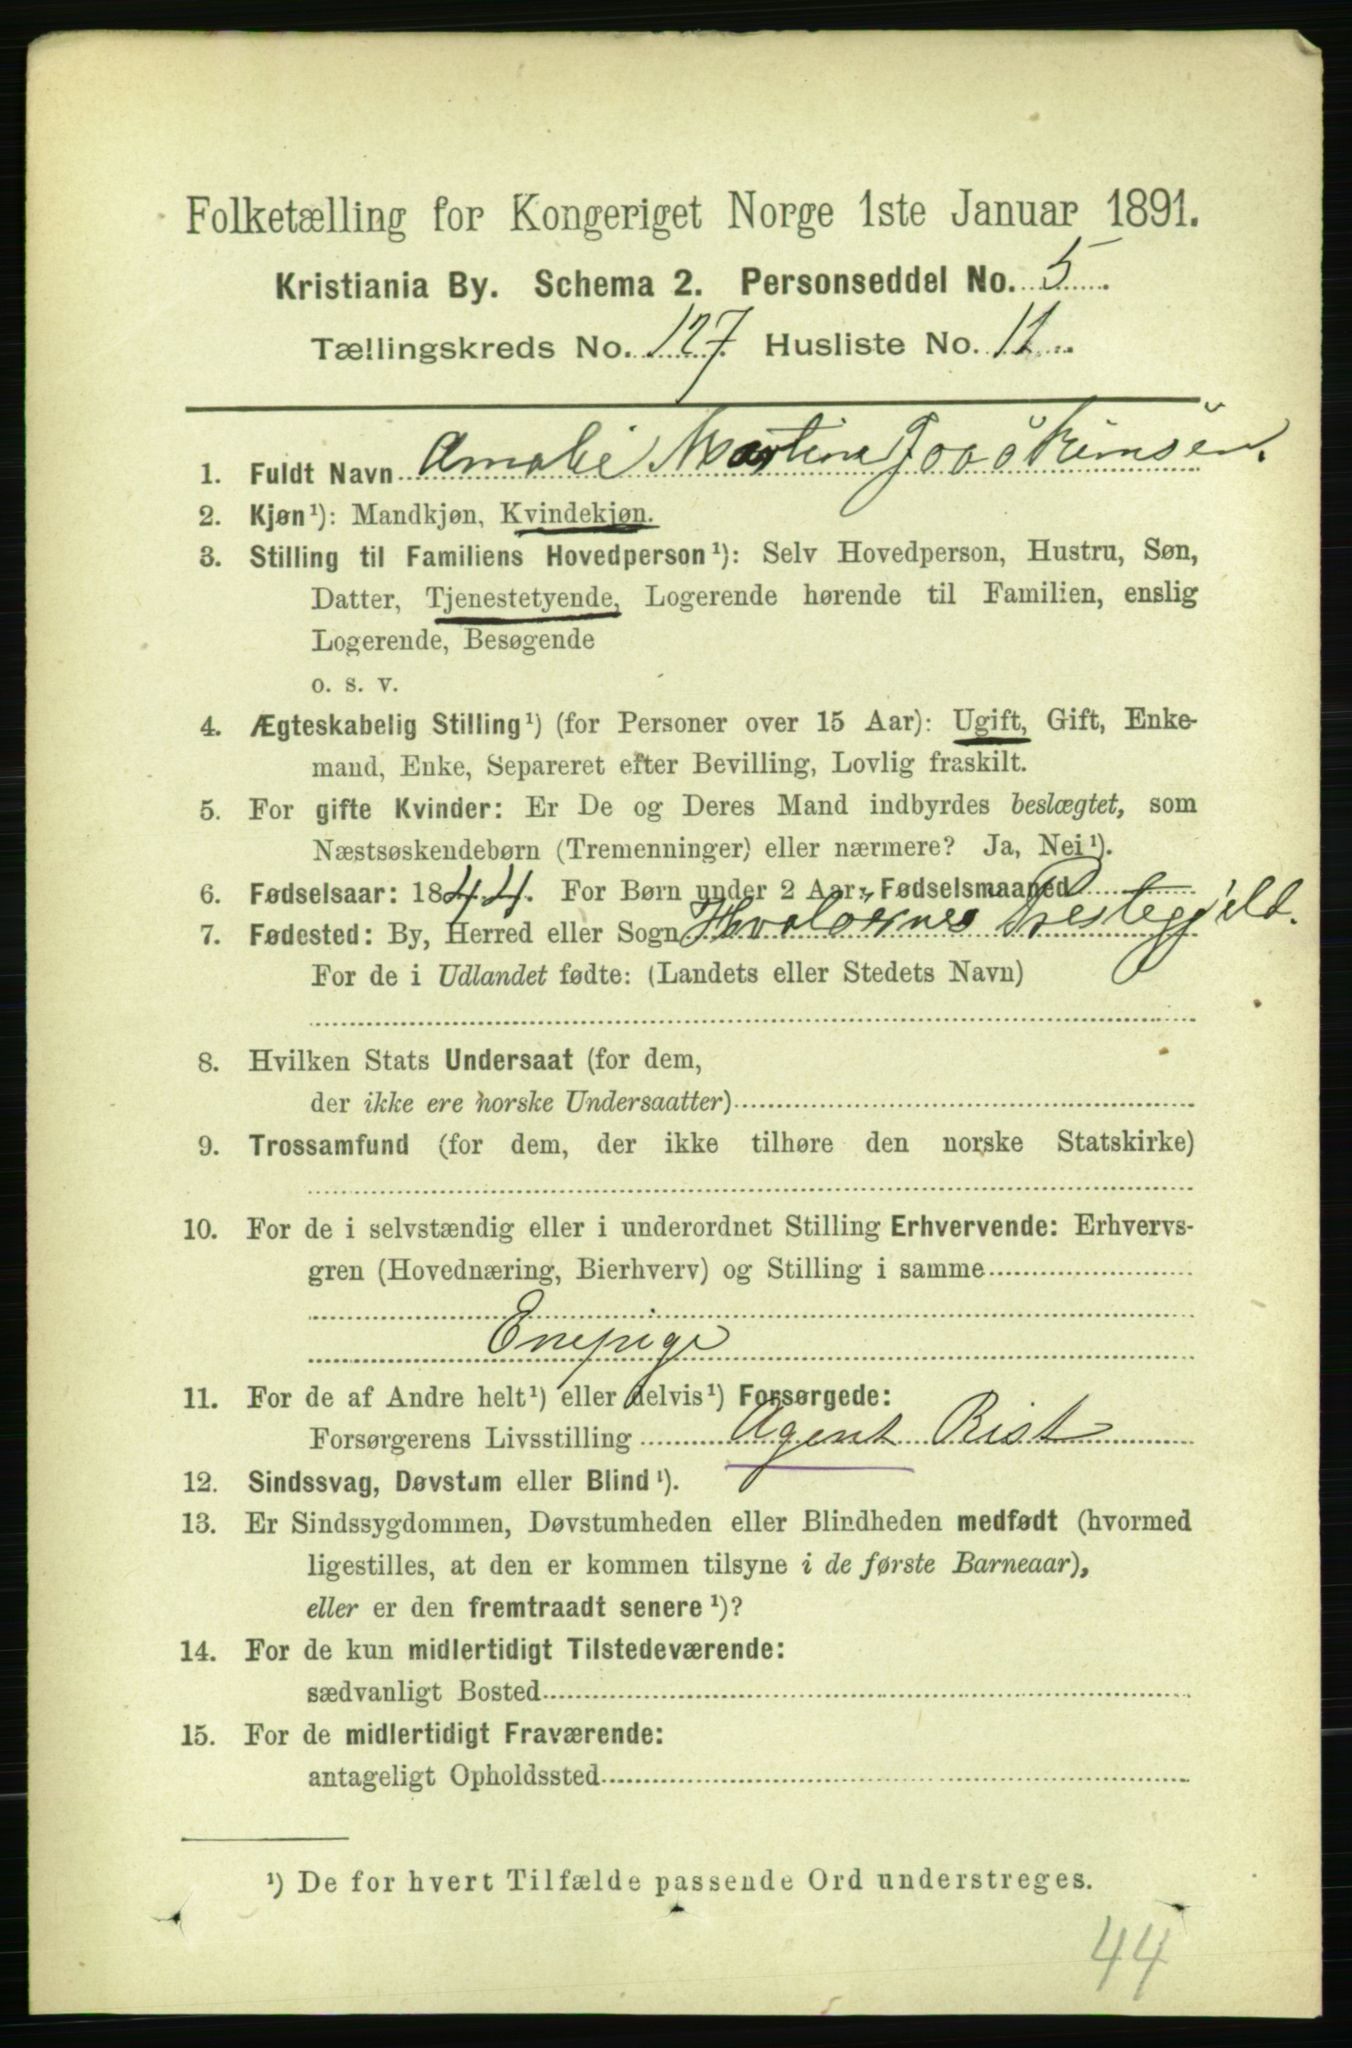 Folketælling for Kongeriget Norge 1ste Januar 1891.
Kristiania By. Schema 2. Personseddel No. 5
Tællingskreds No. 127 Husliste No. 11
1. Fuldt Navn Amalie Martine Joakimsen.
2. Kjøn¹): Mandkjøn, Kvindekjøn.
3. Stilling til Familiens Hovedperson¹): Selv Hovedperson, Hustru, Søn,
Datter, Tjenestetyende, Logerende hørende til Familien, enslig
Logerende, Besøgende
o. s. v.
4. Ægteskabelig Stilling¹) (for Personer over 15 Aar): Ugift, Gift, Enke-
mand, Enke, Separeret efter Bevilling, Lovlig fraskilt.
5. For gifte Kvinder: Er De og Deres Mand indbyrdes beslægtet, som
Næstsøskendebørn (Tremenninger) eller nærmere? Ja, Nei¹).
6. Fødselsaar: 1844. For Børn under 2 Aar: Fødselsmaaned
7. Fødested: By, Herred eller Sogn Hvaløernes Prestegjeld.
For de i Udlandet fødte: (Landets eller Stedets Navn)
8. Hvilken Stats Undersaat (for dem,
der ikke ere norske Undersaatter)
9. Trossamfund (for dem, der ikke tilhøre den norske Statskirke)
10. For de i selvstændig eller i underordnet Stilling Erhvervende: Erhvervs-
gren (Hovednæring, Bierhverv) og Stilling i samme
Enepige
11. For de af Andre helt¹) eller delvis¹) Forsørgede:
Forsørgerens Livsstilling Agent Rist
12. Sindssvag, Døvstum eller Blind¹).
13. Er Sindssygdommen, Døvstumheden eller Blindheden medfødt (hvormed
ligestilles, at den er kommen tilsyne i de første Barneaar),
eller er den fremtraadt senere¹)?
14. For de kun midlertidigt Tilstedeværende:
sædvanligt Bosted
15. For de midlertidigt Fraværende:
antageligt Opholdssted
¹) De for hvert Tilfælde passende Ord understreges.
44